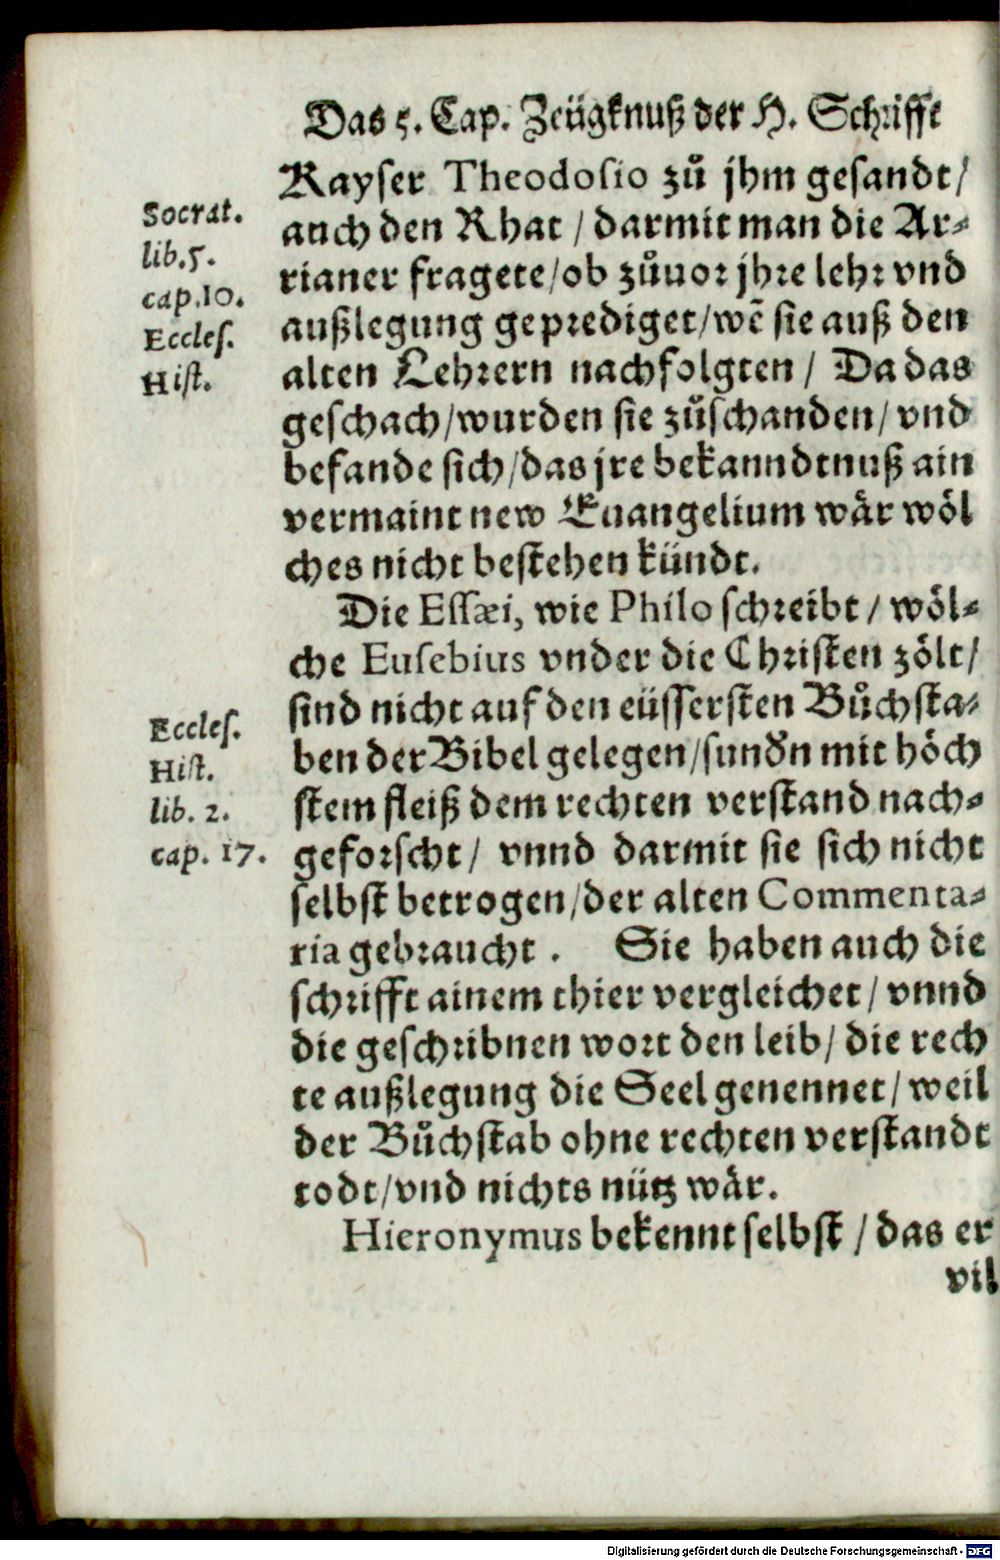 Das 5. Cap. Zeügknuß der H. Schrifft
Kayser Theodosio zů jhm gesandt/
auch den Rhat / darmit man die Ar⸗
rianer fragete/ob zůuor jhre lehr vnd
außlegung geprediget/wē sie auß den
alten Lehrern nachfolgten / Da das
geschach/wurden sie zůschanden/ vnd
befande sich/das jre bekanndtnuß ain
vermaint new Euangelium wår wöl
ches nicht bestehen kündt.
Socrat.
lib.5.
cap.10.
Eccles.
Hist.
Die Essæi, wie Philo schreibt / wöl⸗
che Eusebius vnder die Christen zölt/
sind nicht auf den eüssersten Bůchsta⸗
ben der Bibel gelegen/sunðn mit höch
stem fleiß dem rechten verstand nach⸗
geforscht/ vnnd darmit sie sich nicht
selbst betrogen/der alten Commenta⸗
ria gebraucht . Sie haben auch die
schrifft ainem thier vergleichet/ vnnd
die geschribnen wort den leib/ die rech
te außlegung die Seel genennet/ weil
der Bůchstab ohne rechten verstandt
todt/vnd nichts nütz wår.
Eccles.
Hist.
lib. 2.
cap. 17.
Hieronymus bekennt selbst / das er
vil
Digitalisierung gefördert durch die Deutsche Forschungsgemeinschaft - DFG